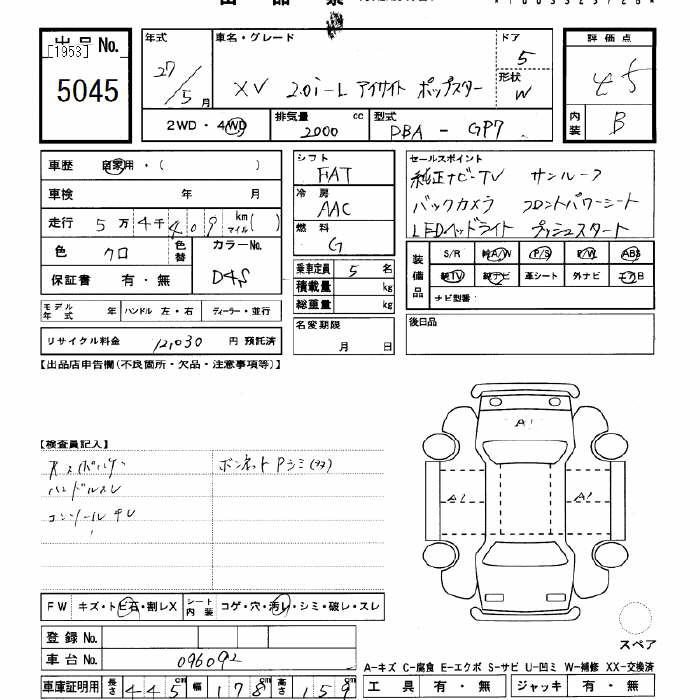 出品票
出品 No.
[1953]
5045
年式
27/5月
車名・グレード
XV 2.0i-L アイサイト ポップスター
ドア
5
形状
W
評価点
45
内装
B
2WD・4WD
排気量
2000 cc
型式
DBA - GP7
車歴 自家用・( )
車検 年 月
走行 5万4千409 km マイル( )
色 クロ
色替
カラーNo.
D4S
保証書 有・無
モデル年式 年
ハンドル 左・右
ディーラー・並行
リサイクル料金 12,030 円 預託済
シフト
FAT
冷房
AAC
燃料
G
乗車定員 5 名
積載量 kg
総重量 kg
名変期限
月 日
セールスポイント
純正ナビ・TV サンルーフ
バックカメラ フロントパワーシート
LEDヘッドライト プッシュスタート
装備品
S/R 純A/W P/S P/W ABS
純TV 純ナビ 革シート 外ナビ エアB
ナビ型番:
後日品
【出品店申告欄(不良箇所・欠品・注意事項等)】
【検査員記入】
ハンドルスレ
コンソールキレ
ボンネット Pシミ
A1
A1
A1
FW キズ・トビ石・割レX
シート内装 コゲ・穴・汚レ・シミ・破レ・スレ
登録 No.
車台 No. 096092
車庫証明用 長さ 445 cm 幅 178 cm 高さ 159
スペア
A-キズ C-腐食 E-エクボ S-サビ U-凹ミ W-補修 XX-交換済
工具 有・無 ジャッキ 有・無